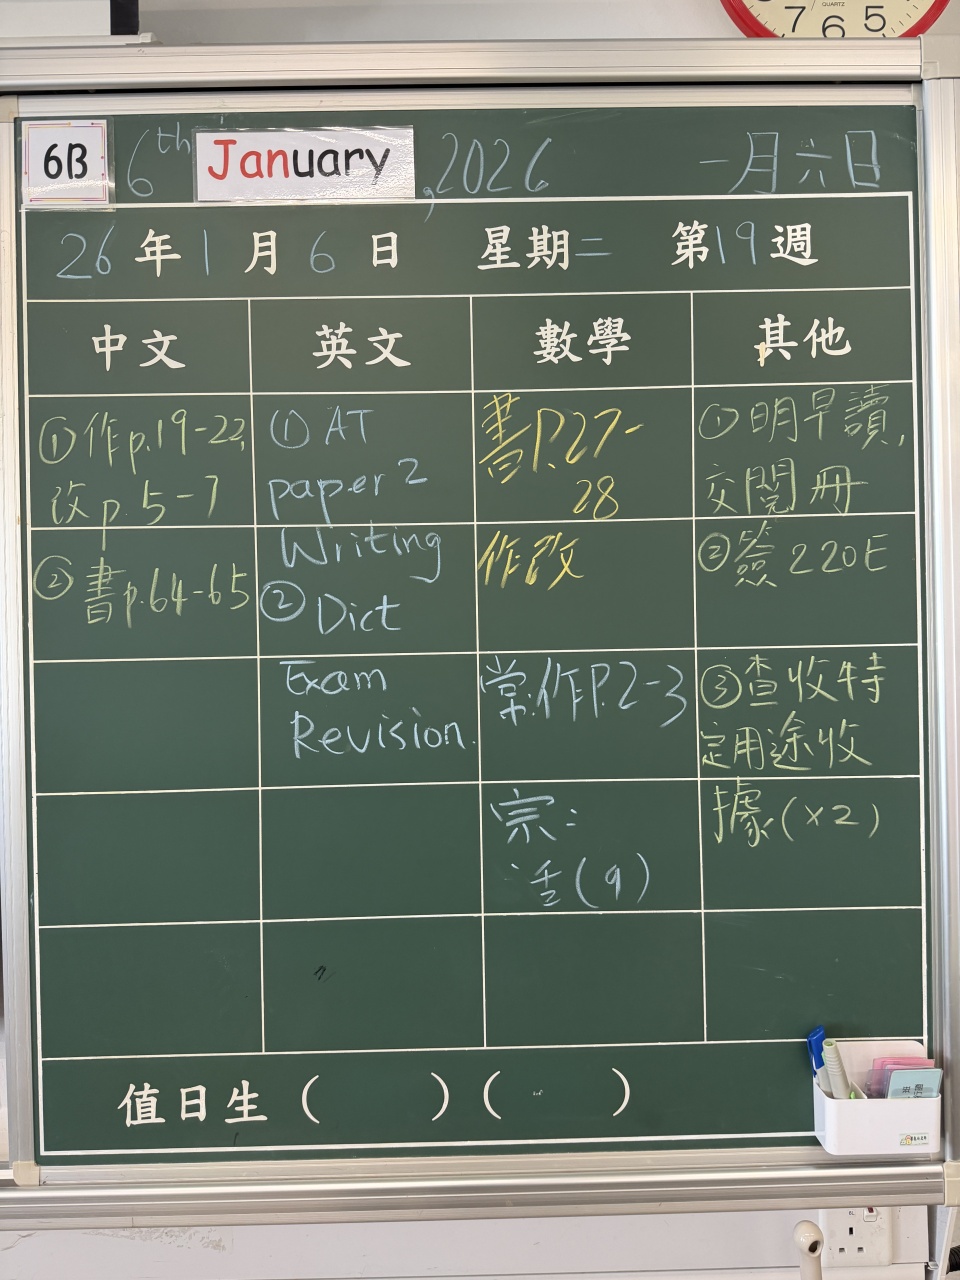 7 6 5
QUARTZ
6B 6th January, 2026 一月六日
26年1月6日 星期二 第19週
中文 英文 數學 其他
①作p.19-22,
改p.5-7
②書p.64-65
①AT
paper 2
Writing
②Dict
Exam
Revision.
書P.27-
28
作改
常.作P.2-3
宗:
活(9)
①明早讀,
交閱冊
②簽220E
③查收特
定用途收
據(×2)
值日生( )( )